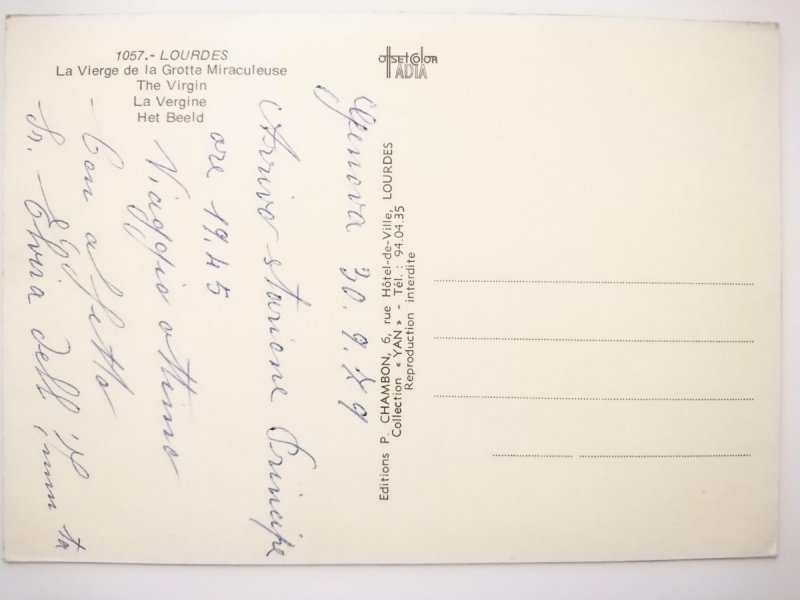 1057.- LOURDES
La Vierge de la Grotte Miraculeuse
The Virgin
La Vergine
Het Beeld
OFFSETCOLOR
ADIA
Editions P. CHAMBON, 6, rue Hôtel-de-Ville, LOURDES
Collection « YAN » - Tél. : 94.04.35
Reproduction interdite
Genova 30.9.79
Arrivo stazione Principe
ore 19.45
Viaggio ottimo
- Con affetto
Sr. Elvira dell'